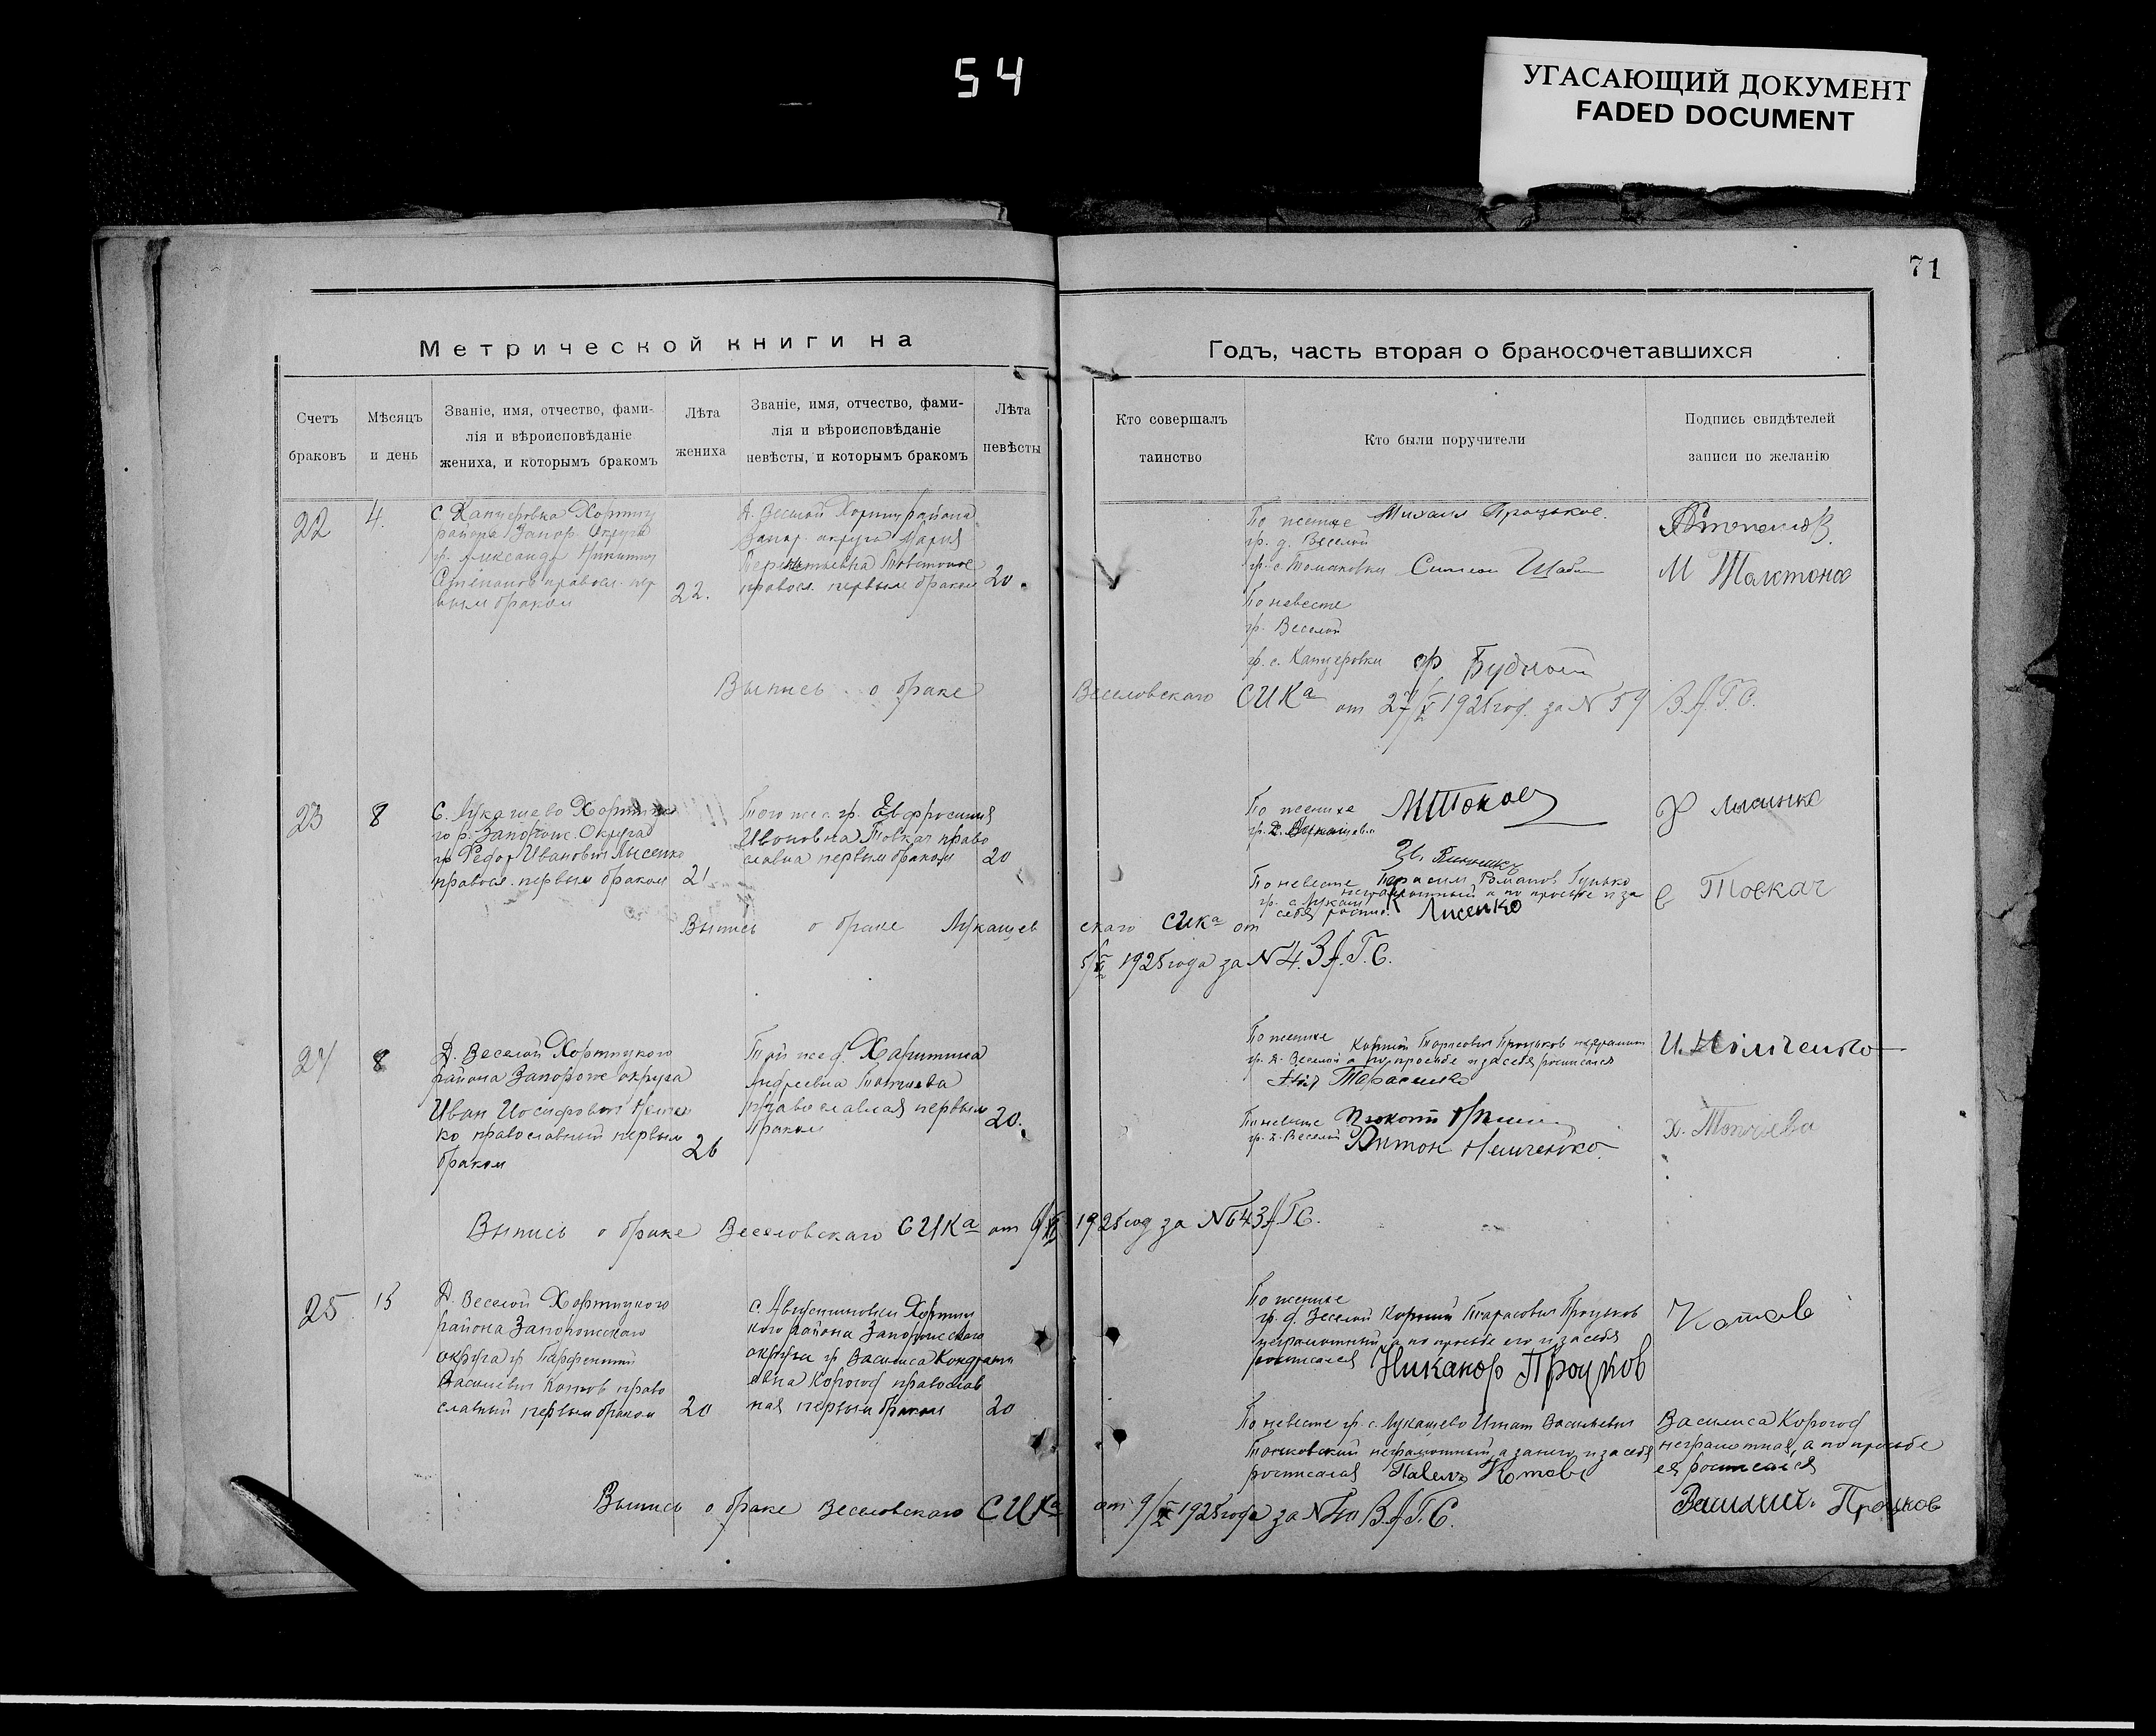 54
УГАСАЮЩИЙ ДОКУМЕНТ
FADED DOCUMENT
71
Метрической книги на
Годъ, часть вторая о бракосочетавшихся
Счетъ браковъ
Мѣсяцъ и день
Званіе, имя, отчество, фами-
лія и вѣроисповѣданіе
жениха, и которымъ бракомъ
Лѣта жениха
Званіе, имя, отчество, фами-
лія и вѣроисповѣданіе
невѣсты, и которымъ бракомъ
Лѣта невѣсты
Кто совершалъ таинство
Кто были поручители
Подпись свидѣтелей
записи по желанію
22
4.
С. Канцеровка Хортиц
района Запор. Округа
гр. Александр Никитич
Степанов правосл. пер
вым браком
22.
Д. Веселой Хортиц района
Запор. округа Мария
правосл. первым браком
20.
По жениxе Михаил Процьков.
гр. д. Веселой
гр. с. Томаковки
По невесте
гр. Веселой
гр. с. Канцеровки
М
Выпись о браке Веселовскаго СИКа от 27/X 1925 год. за N 59 З.А.Г.С.
23
8
С. Лукашево Хортицко
го р. Запорож. Округа
гр Федор Иванович Лысенко
правосл. первым браком
21
Того же с. гр. Евфросиния
Ивоновна Товкач право
славна первым браком
20
По женихе
По невесте Герасим Романов. Гунько
неграмотный а по просьбе и за
себя роспис. Лисенко
Ф Лисинко
Е Товкач
Выпись о браке Лукашев ского СИКа от
1925 года за N 4. З.А.Г.С.
24
8
Д. Веселой Хортицкого
района Запорож округа
Иван Иосифович Немчен
ко православный первым
браком
26
Той же д. Харитина
Андреевна Топчиева
православная первым
браком
20.
По женихе Корний Тарасович Процьков неграмотн
гр. д. Веселой а по просьбе и за себя росписался
Тарасенко
По невесте
гр. д. Веселой Антон Немченко.
И. Немченко
Х. Топчиева
Выпись о браке Веселовскаго СИКа от 1925 год за N 64 ЗАГС.
25
15
Д. Веселой Хортицкого
района Запорожского
округа гр Парфентий
Васильевич Котов право
славный первым браком
20
с. Августиновки Хортиц
кого района Запорожского
округа гр Василиса Кондрать
евна Корогод православ
ная первым браком
20
По женихе
гр. д. Веселой Корний Тарасович Процьков
неграмотный, а по просьбе его и за себя
росписался Никанор Процков
По невесте гр. с. Лукашево Игнат Васильевич
неграмотный, а за него и за себя
росписался Павелъ Котовъ
Котов
Василиса Корогод
неграмотная, а по просьбе
ея росписался
Василий. Процков
Выпись о браке Веселовскаго СИКа от 9/X 1925 года за N З.А.Г.С.